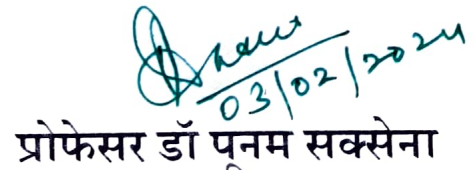 03/02/2024
प्रोफेसर डॉ पूनम सक्सेना